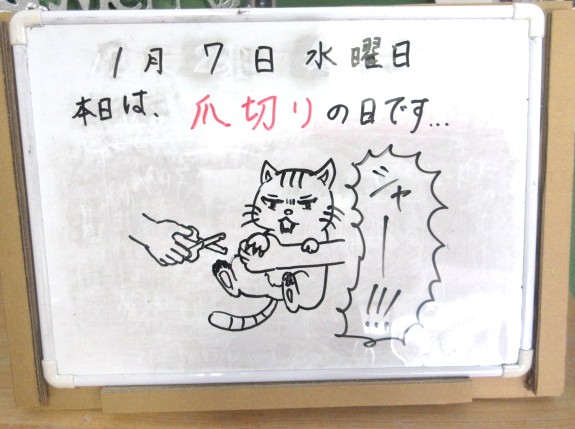 1月 7日 水曜日
本日は、爪切りの日です...
シャー!!!